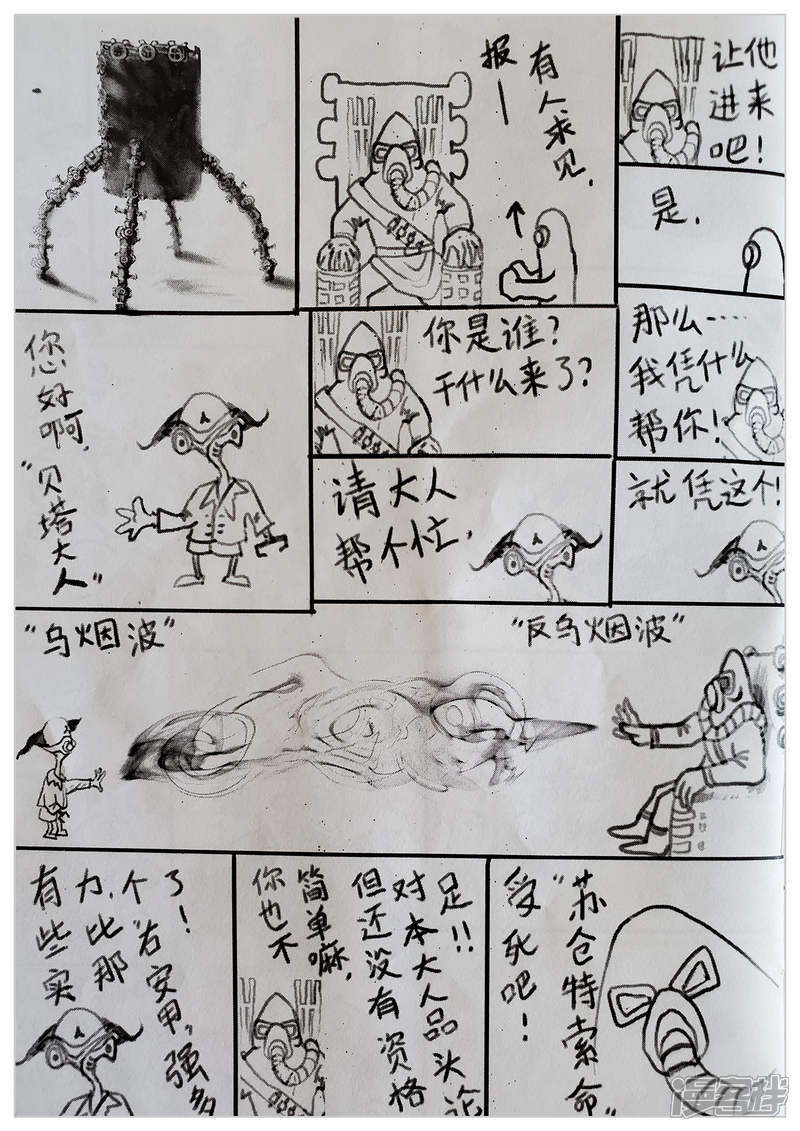 报—
有人求见，
让他
进来
吧！
是．
您好啊，
“贝塔大人”
你是谁？
干什么来了？
那么……
我凭什么
帮你！
请大人
帮个忙，
就凭这个！
“乌烟波”
“反乌烟波”
有些实
力．比那
个“右安甲，强多
了！
你也不
简单嘛，
但还没有资格
对本大人品头论
足！！
“苏仓特索命”
受死吧！
漫客栈